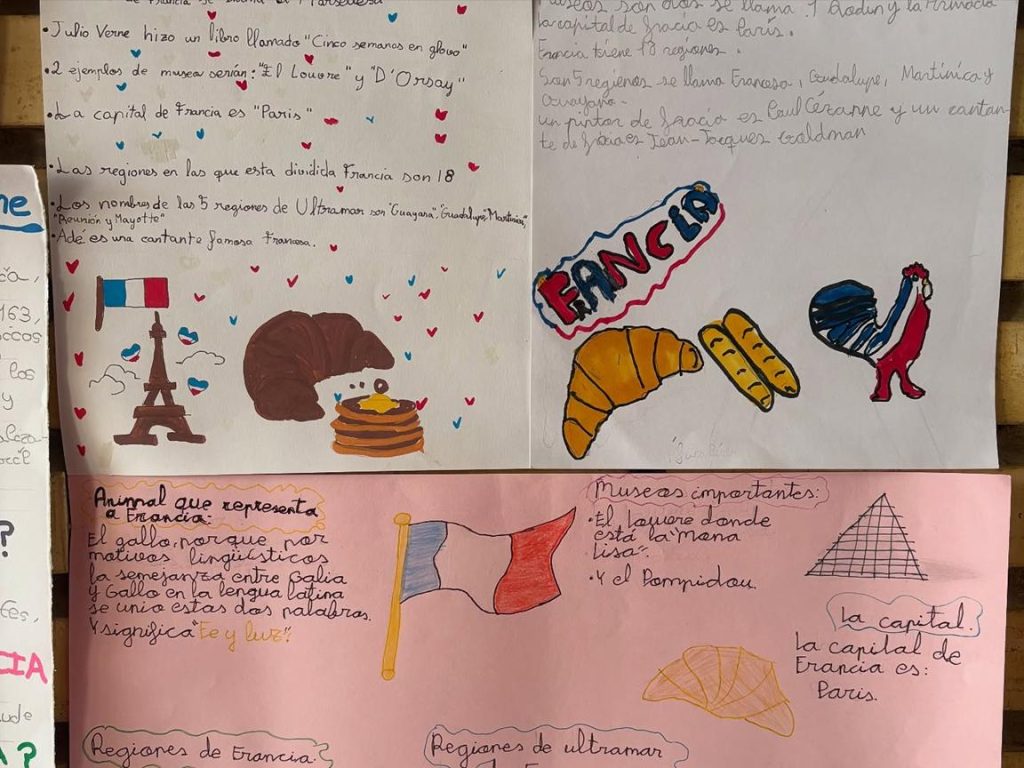 de Francia se
• Julio Verne hizo un libro llamado "Cinco semanas en globo"
• 2 ejemplos de museo serían: "El Louvre" y "D'Orsay"
• La capital de Francia es "Paris"
• Las regiones en las que esta dividida Francia son 18
• Los nombres de las 5 regiones de Ultramar son "Guayana", "Guadalupe", "Martinica",
"Reunión y Mayotte"
• Adé es una cantante famosa francesa.
museos son dos se llama. 1 Rodin y la
la capital de fracia es Paris.
Francia tiene 18 regiones.
Son 5 regiones se llama Francesa, Guadalupe, Martinica y
un pintor de fracia es Paul Cézanne y un cantan-
te de fracia es Jean-Jacques Goldman
FRANCIA
ne
ca,
163,
icos
los
y
?
tes,
CIA
ude
A?
Animal que representa
a Francia:
El gallo, porque por
motivos lingüísticos
la semejanza entre Galia
y Gallo en la lengua latina
se unio estas dos palabras.
Y significa "Fe y luz".
Museos importantes:
• El louvre donde
está la "Mona
Lisa".
• Y el Pompidou.
La capital.
La capital de
Francia es:
Paris.
Regiones de Francia.
Regiones de ultramar